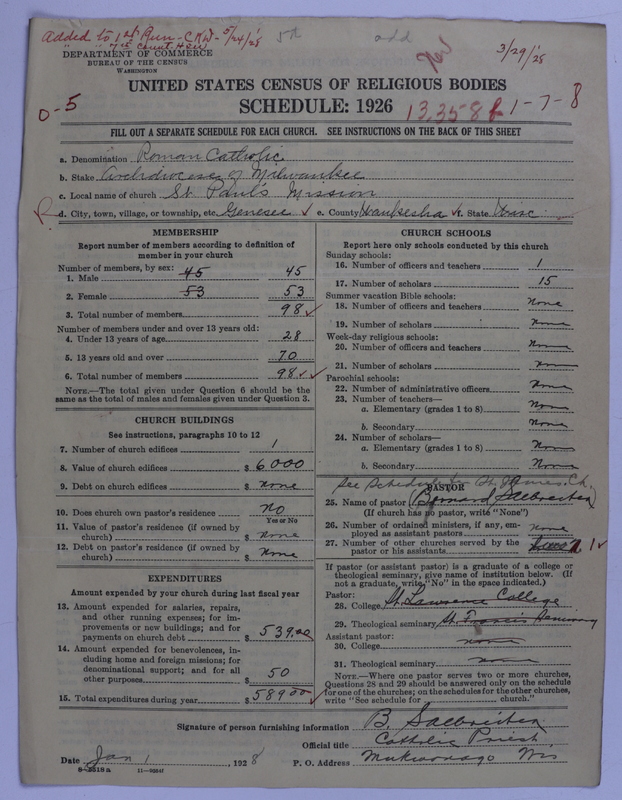 Added to 1st Run - CKW - 5/24/28
5th
add
3/29/28
DEPARTMENT OF COMMERCE
BUREAU OF THE CENSUS
WASHINGTON
UNITED STATES CENSUS OF RELIGIOUS BODIES
SCHEDULE: 1926
0-5
13,358
1-7-8
FILL OUT A SEPARATE SCHEDULE FOR EACH CHURCH. SEE INSTRUCTIONS ON THE BACK OF THIS SHEET
a. Denomination Roman Catholic
b. Stake Archdiocese of Milwaukee
c. Local name of church St. Paul's Mission
d. City, town, village, or township, etc. Genesee ✓ e. County Waukesha ✓ f. State Wisc
MEMBERSHIP
Report number of members according to definition of
member in your church
Number of members, by sex:
1. Male 45 45
2. Female 53 53
3. Total number of members 98 ✓
Number of members under and over 13 years old:
4. Under 13 years of age 28
5. 13 years old and over 70
6. Total number of members 98 ✓ ✓
NOTE.—The total given under Question 6 should be the
same as the total of males and females given under Question 3.
CHURCH BUILDINGS
See instructions, paragraphs 10 to 12
7. Number of church edifices 1
8. Value of church edifices $ 6000
9. Debt on church edifices $ none
10. Does church own pastor's residence? No
Yes or No
11. Value of pastor's residence (if owned by
church) $ none
12. Debt on pastor's residence (if owned by
church) $ none
EXPENDITURES
Amount expended by your church during last fiscal year
13. Amount expended for salaries, repairs,
and other running expenses; for im-
provements or new buildings; and for
payments on church debt $ 539.00
14. Amount expended for benevolences, in-
cluding home and foreign missions; for
denominational support; and for all
other purposes $ 50
15. Total expenditures during year $ 589.00 ✓
CHURCH SCHOOLS
Report here only schools conducted by this church
Sunday schools:
16. Number of officers and teachers 1
17. Number of scholars 15
Summer vacation Bible schools:
18. Number of officers and teachers None
19. Number of scholars None
Week-day religious schools:
20. Number of officers and teachers None
21. Number of scholars None
Parochial schools:
22. Number of administrative officers None
23. Number of teachers—
a. Elementary (grades 1 to 8) None
b. Secondary None
24. Number of scholars—
a. Elementary (grades 1 to 8) None
b. Secondary None
See Schedule for St. James Ch.
PASTOR
25. Name of pastor (Bernard Salbreiter)
(If church has no pastor, write "None")
26. Number of ordained ministers, if any, em-
ployed as assistant pastors none
27. Number of other churches served by the
pastor or his assistants 1 ✓
If pastor (or assistant pastor) is a graduate of a college or
theological seminary, give name of institution below. (If
not a graduate, write "No" in the space indicated.)
Pastor:
28. College St. Lawrence College
29. Theological seminary St. Francis Seminary
Assistant pastor:
30. College none
31. Theological seminary none
NOTE.—Where one pastor serves two or more churches,
Questions 28 and 29 should be answered only on the schedule
for one of the churches; on the schedules for the other churches,
write "See schedule for church."
Signature of person furnishing information B. Salbreiter
Official title Catholic Priest
Date Jan 1, 1928 P. O. Address Mukwonago Wis
8-5518a 11-9664f